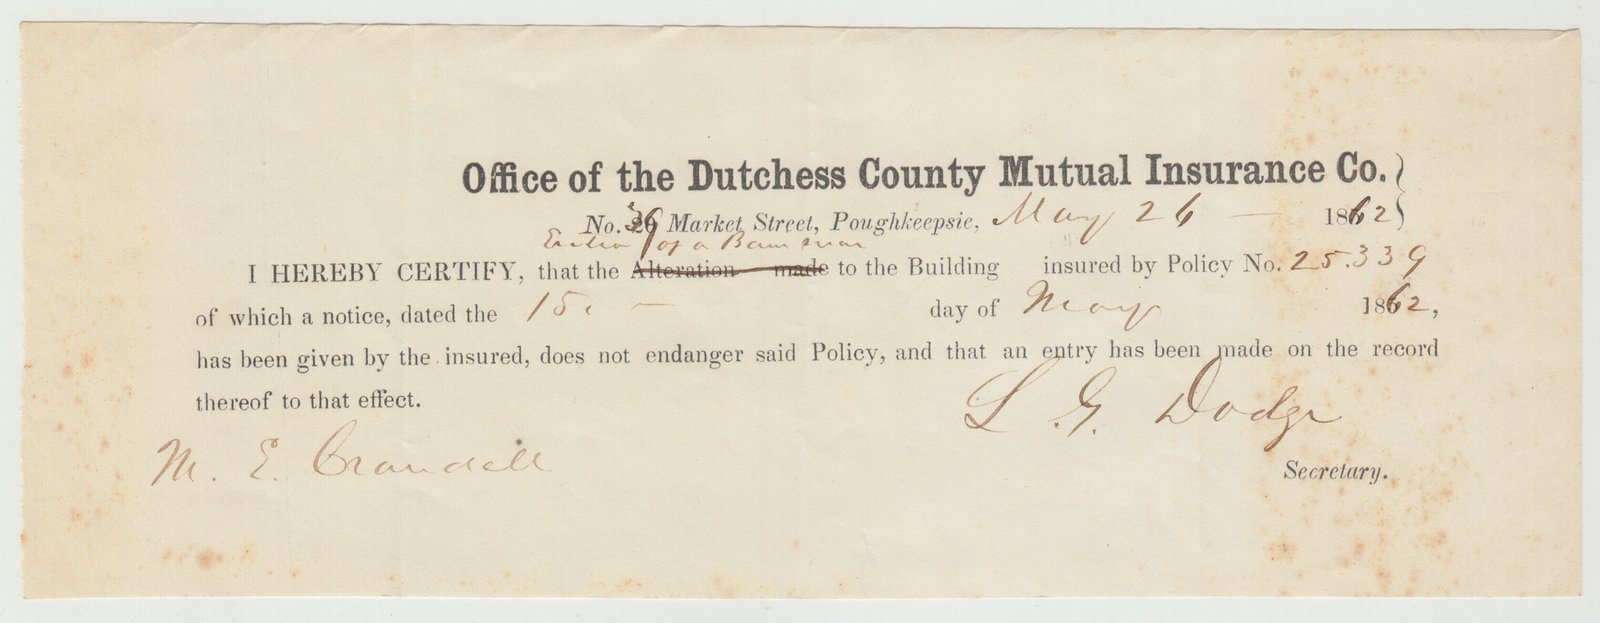 Office of the Dutchess County Mutual Insurance Co.
No. 39 Market Street, Poughkeepsie, May 26 — 1862
Erection of a Barn near
I HEREBY CERTIFY, that the Alteration made to the Building insured by Policy No. 25.339
of which a notice, dated the 15. — day of May 1862,
has been given by the insured, does not endanger said Policy, and that an entry has been made on the record
thereof to that effect.
L. G. Dodge
M. E. Crandell
Secretary.